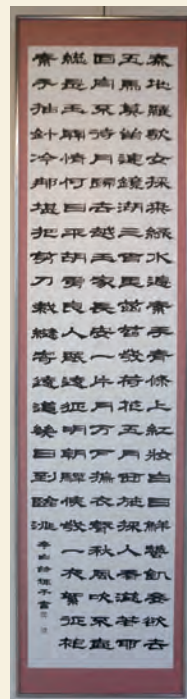 秦地羅敷女採桑綠水邊素手青條上紅妝白日鮮蠶飢妾欲去
五馬莫留連鏡湖三百里菡萏發荷花五月西施採人看隘若耶
回舟不待月歸去越王家長安一片月萬戶擣衣聲秋風吹不盡
總是玉關情何日平胡虜良人罷遠征明朝驛使發一夜絮征袍
素手抽針冷那堪把剪刀裁縫寄遠道幾日到臨洮
李白詩 子書